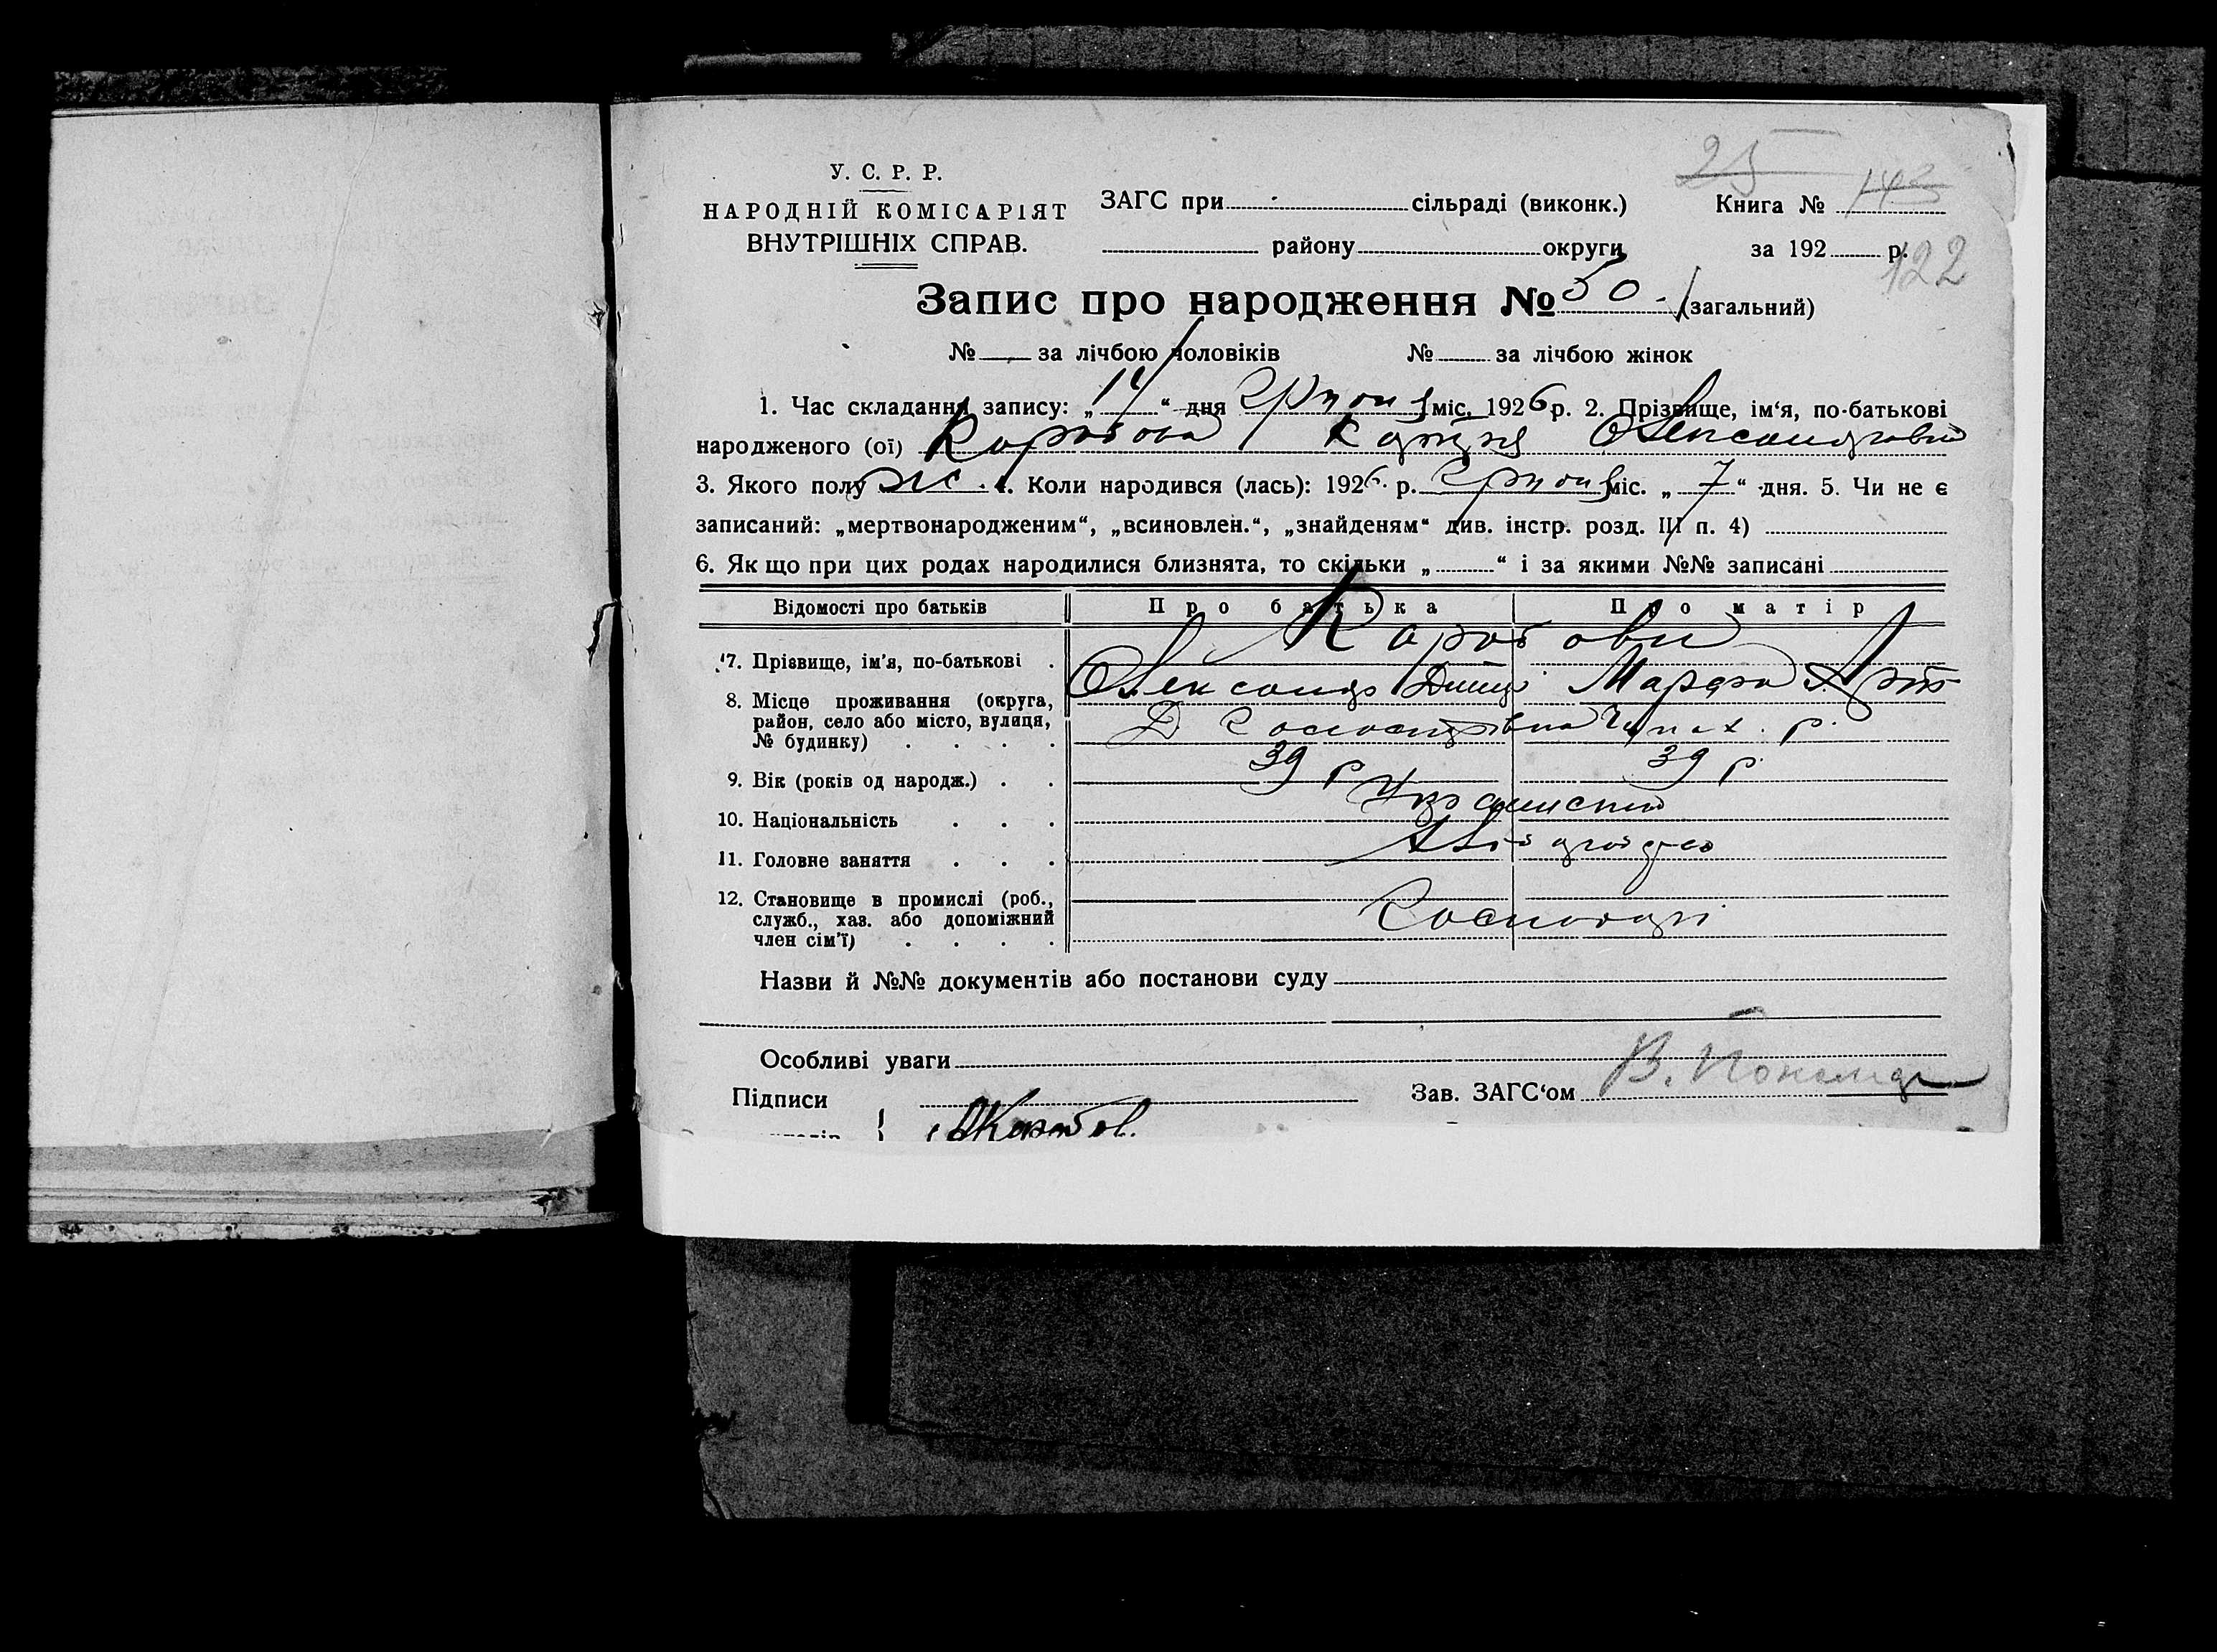 25
У. С. Р. Р.
НАРОДНІЙ КОМІСАРІЯТ
ВНУТРІШНІХ СПРАВ.
ЗАГС при сільраді (виконк.) Книга № 143
району округи за 192 р.
122
Запис про народження № 50. (загальний)
№ за лічбою чоловіків № за лічбою жінок
1. Час складання запису: „14“ дня Грудня міс. 1926 р. 2. Прізвище, ім‘я, по-батькові
народженого (ої) Коробова Олександровна
3. Якого полу ж. 4. Коли народився (лась): 1926 р. Грудня міс. „7“ дня. 5. Чи не є
записаний: „мертвонародженим“, „всиновлен.“, „знайденям“ див. інстр. розд. III п. 4)
6. Як що при цих родах народилися близнята, то скільки „ “ і за якими №№ записані
Відомості про батьків Про батька Про матір
7. Прізвище, ім'я, по-батькові Коробови
Олександр Марфа
8. Місце проживання (округа, район, село або місто, вулиця, № будинку) р.
9. Вік (років од народж.) 39 р 39 р.
10. Національність
11. Головне заняття Хліборобство
12. Становище в промислі (роб., служб., хаз. або допоміжний член сім'ї) Господарі
Назви й №№ документів або постанови суду
Особливі уваги
Підписи Зав. ЗАГС‘ом В.